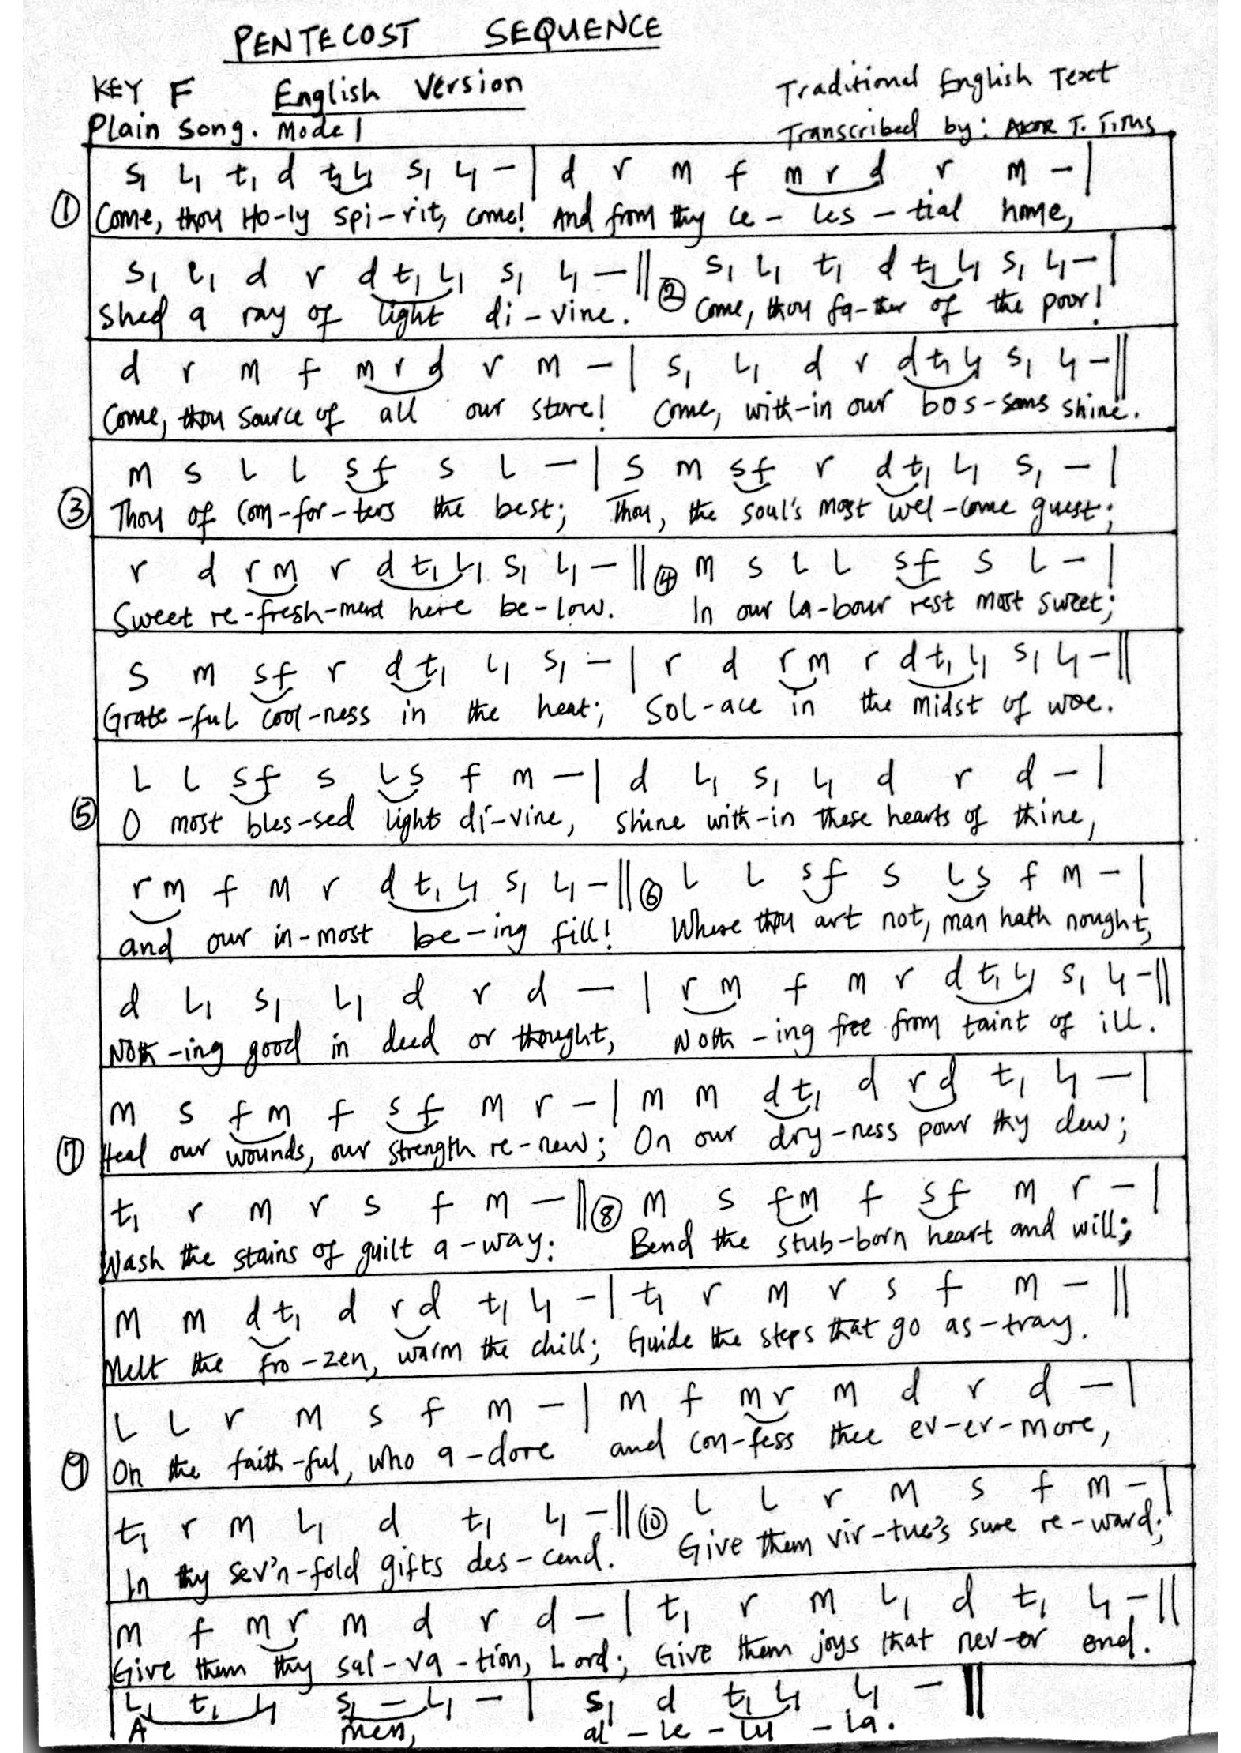 PENTECOST SEQUENCE
KEY F English Version
Traditional English Text
Plain Song. Mode 1
Transcribed by: T. Titus
s₁ l₁ t₁ d t₁l₁ s₁ l₁ – | d r m f m r d r m – |
① Come, thou Ho-ly Spi-rit, come! And from thy ce-les-tial home,
s₁ l₁ d r d t₁ l₁ s₁ l₁ – || ② s₁ l₁ t₁ d t₁ l₁ s₁ l₁ – |
Shed a ray of light di-vine. Come, thou fa-ther of the poor!
d r m f m r d r m – | s₁ l₁ d r d t₁ l₁ s₁ l₁ – ||
Come, thou source of all our store! Come, with-in our bos-soms shine.
m s l l s f s l – | s m s f r d t₁ l₁ s₁ – |
③ Thou of com-for-ters the best; Thou, the soul's most wel-come guest;
r d r m r d t₁ l₁ s₁ l₁ – || ④ m s l l s f s l – |
Sweet re-fresh-ment here be-low. In our la-bour rest most sweet;
s m s f r d t₁ l₁ s₁ – | r d r m r d t₁ l₁ s₁ l₁ – ||
Grate-ful cool-ness in the heat; Sol-ace in the midst of woe.
l l s f s l s f m – | d l₁ s₁ l₁ d r d – |
⑤ O most bles-sed light di-vine, shine with-in these hearts of thine,
r m f m r d t₁ l₁ s₁ l₁ – || ⑥ l l s f s l s f m – |
and our in-most be-ing fill! Where thou art not, man hath nought,
d l₁ s₁ l₁ d r d – | r m f m r d t₁ l₁ s₁ l₁ – ||
Noth-ing good in deed or thought, Noth-ing free from taint of ill.
m s f m f s f m r – | m m d t₁ d r d t₁ l₁ – |
⑦ Heal our wounds, our strength re-new; On our dry-ness pour thy dew;
t₁ r m r s f m – || ⑧ m s f m f s f m r – |
Wash the stains of guilt a-way: Bend the stub-born heart and will;
m m d t₁ d r d t₁ l₁ – | t₁ r m r s f m – ||
Melt the fro-zen, warm the chill; Guide the steps that go as-tray.
l l r m s f m – | m f m r m d r d – |
⑨ On the faith-ful, who a-dore and con-fess thee ev-er-more,
t₁ r m l₁ d t₁ l₁ – || ⑩ l l r m s f m – |
In thy sev'n-fold gifts des-cend. Give them vir-tue's sure re-ward;
m f m r m d r d – | t₁ r m l₁ d t₁ l₁ – ||
Give them thy sal-va-tion, Lord; Give them joys that nev-er end.
l₁ t₁ l₁ s₁ – l₁ – | s₁ d t₁ l₁ l₁ – ||
A men, al-le-lu-la.